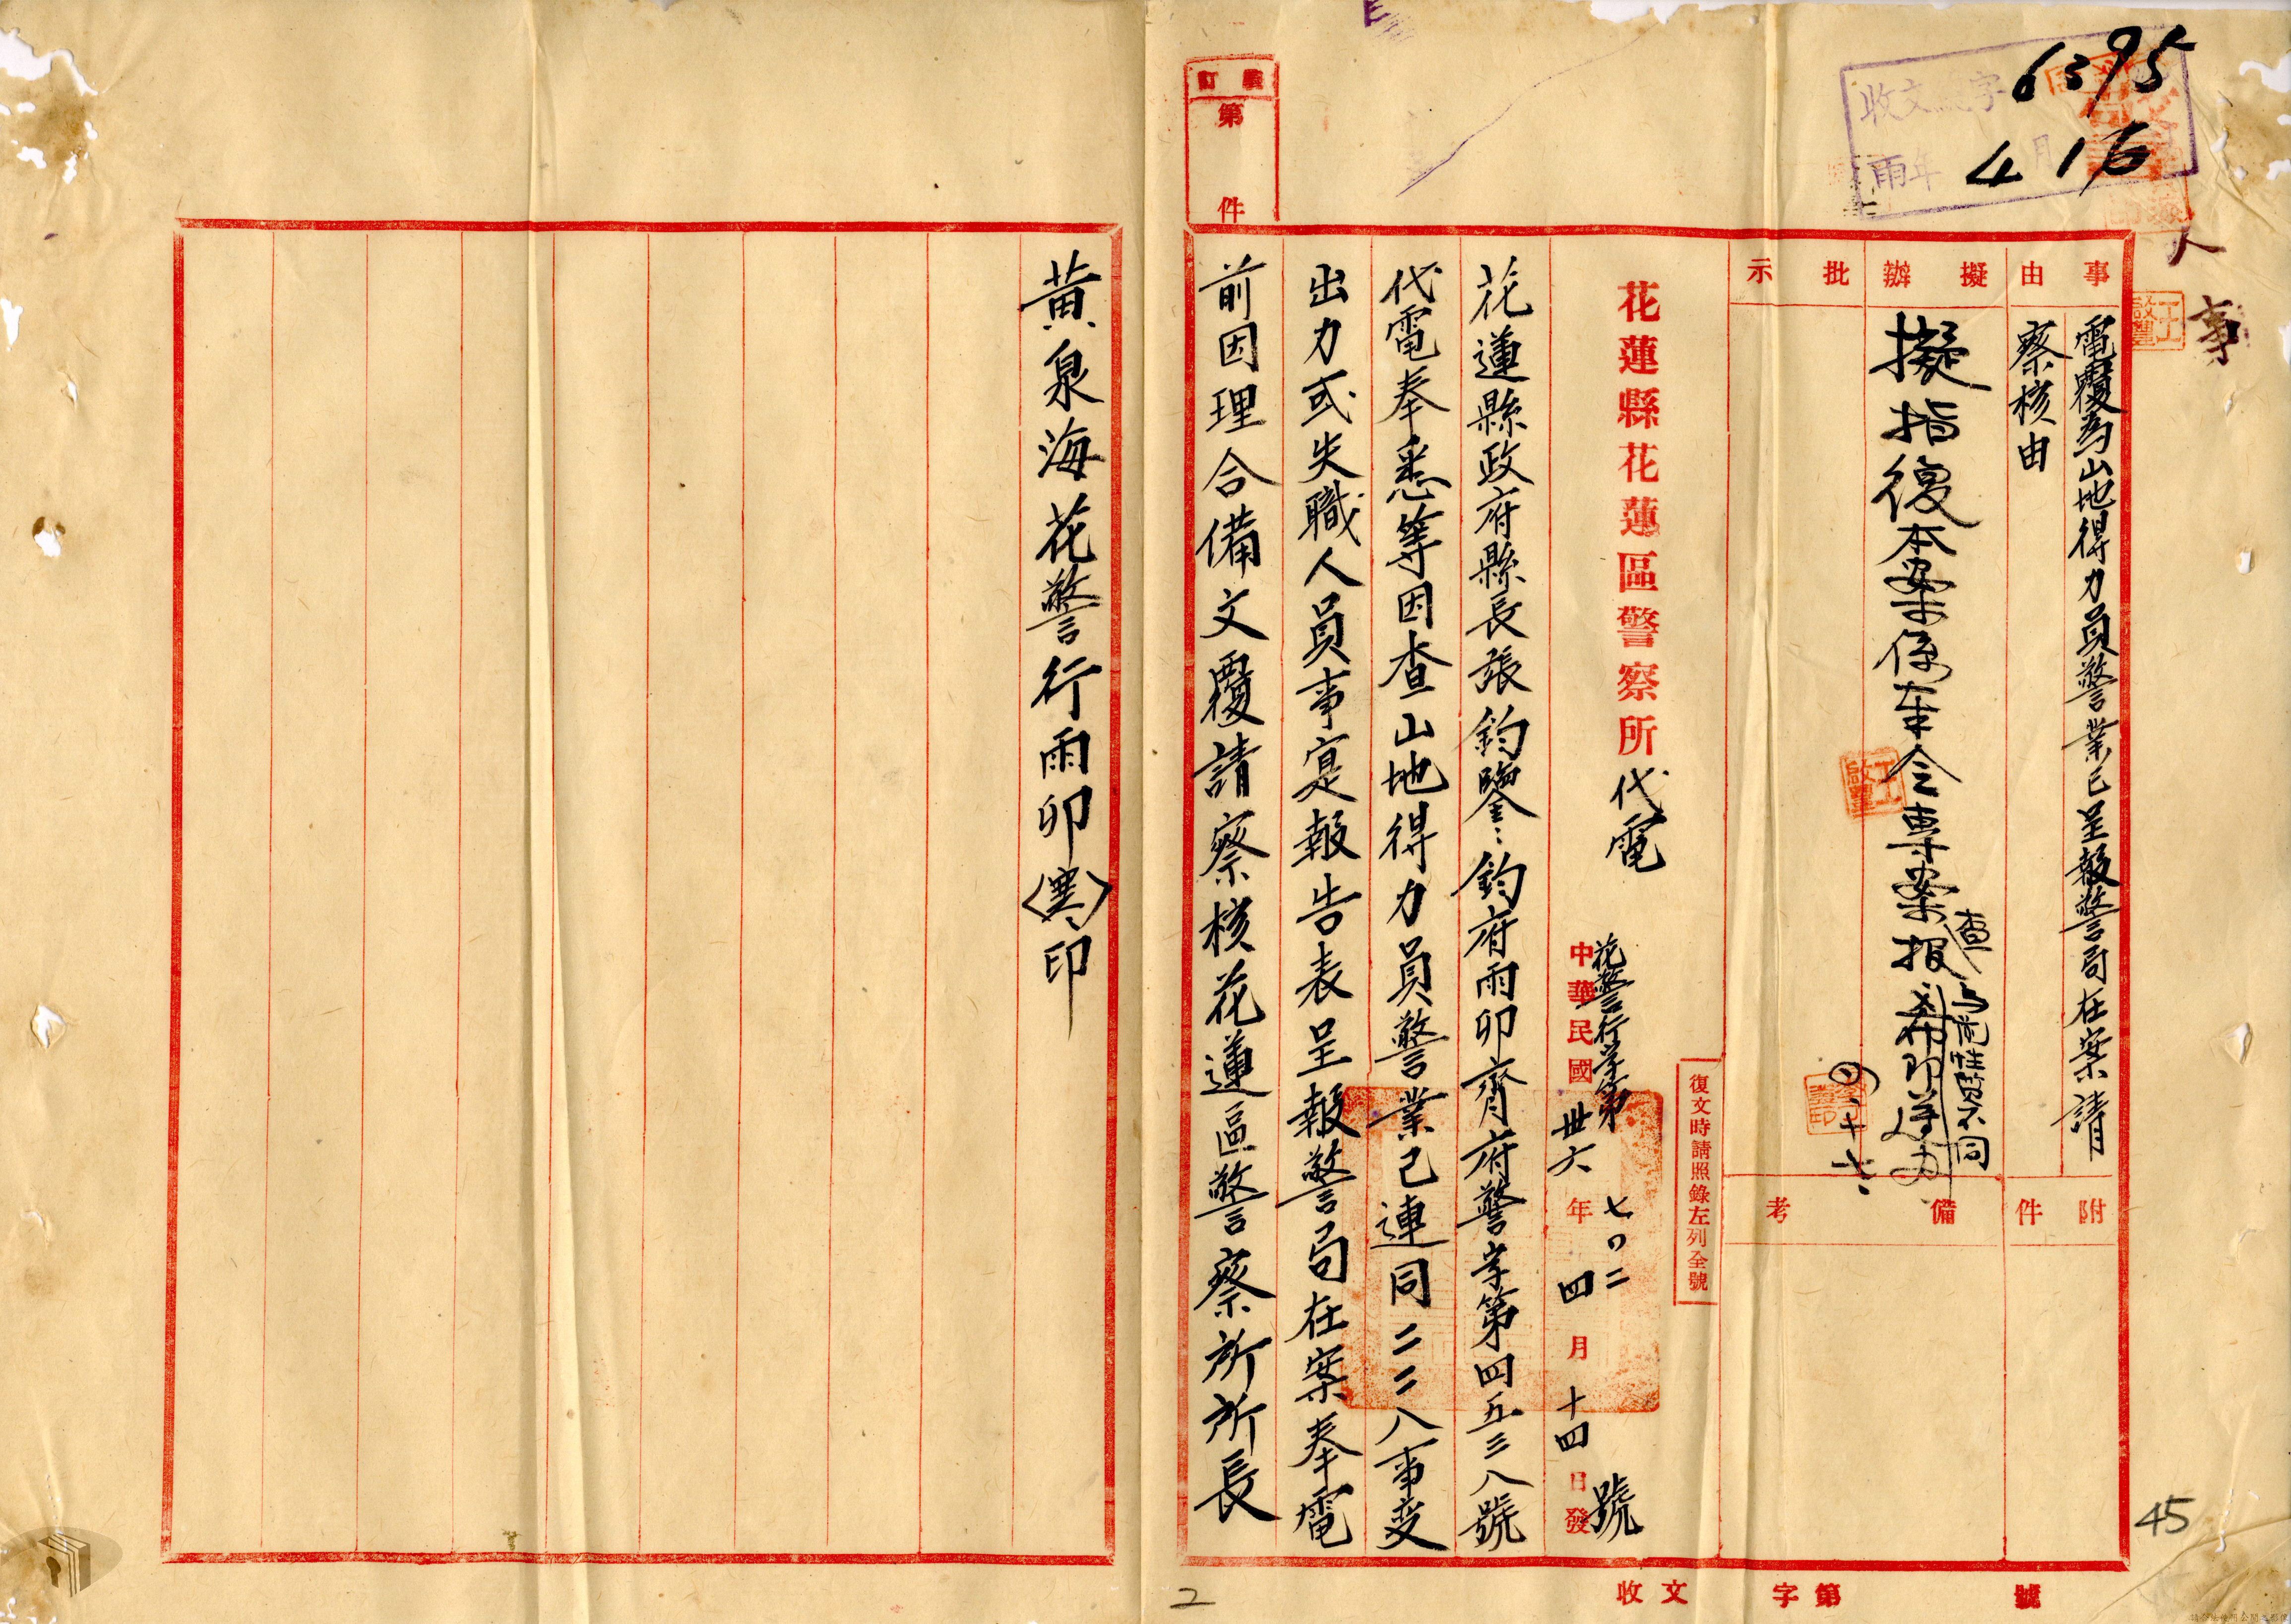 6395
收文 字
雨年 4月16
人事
事由
電覆為山地得力員警業已呈報警局在案請
察核由
擬辦
擬指復本案係奉令專案報
查
性質不同
批示
附件
備考
復文時請照錄左列全號
花蓮縣花蓮區警察所代電
花警行字第七〇二號
中華民國卅六年四月十四日發
花蓮縣政府縣長張鈞鑒:鈞府雨卯齊府警字第四五三八號
代電奉悉等因查山地得力員警業已連同二二八事变
出力或失職人員事寔報告表呈報警局在案奉電
前因理合備文覆請察核花蓮區警察所所長
裝訂
第 件
黃泉海花警行雨卯〈寒〉印
收文 字第 號
45
2